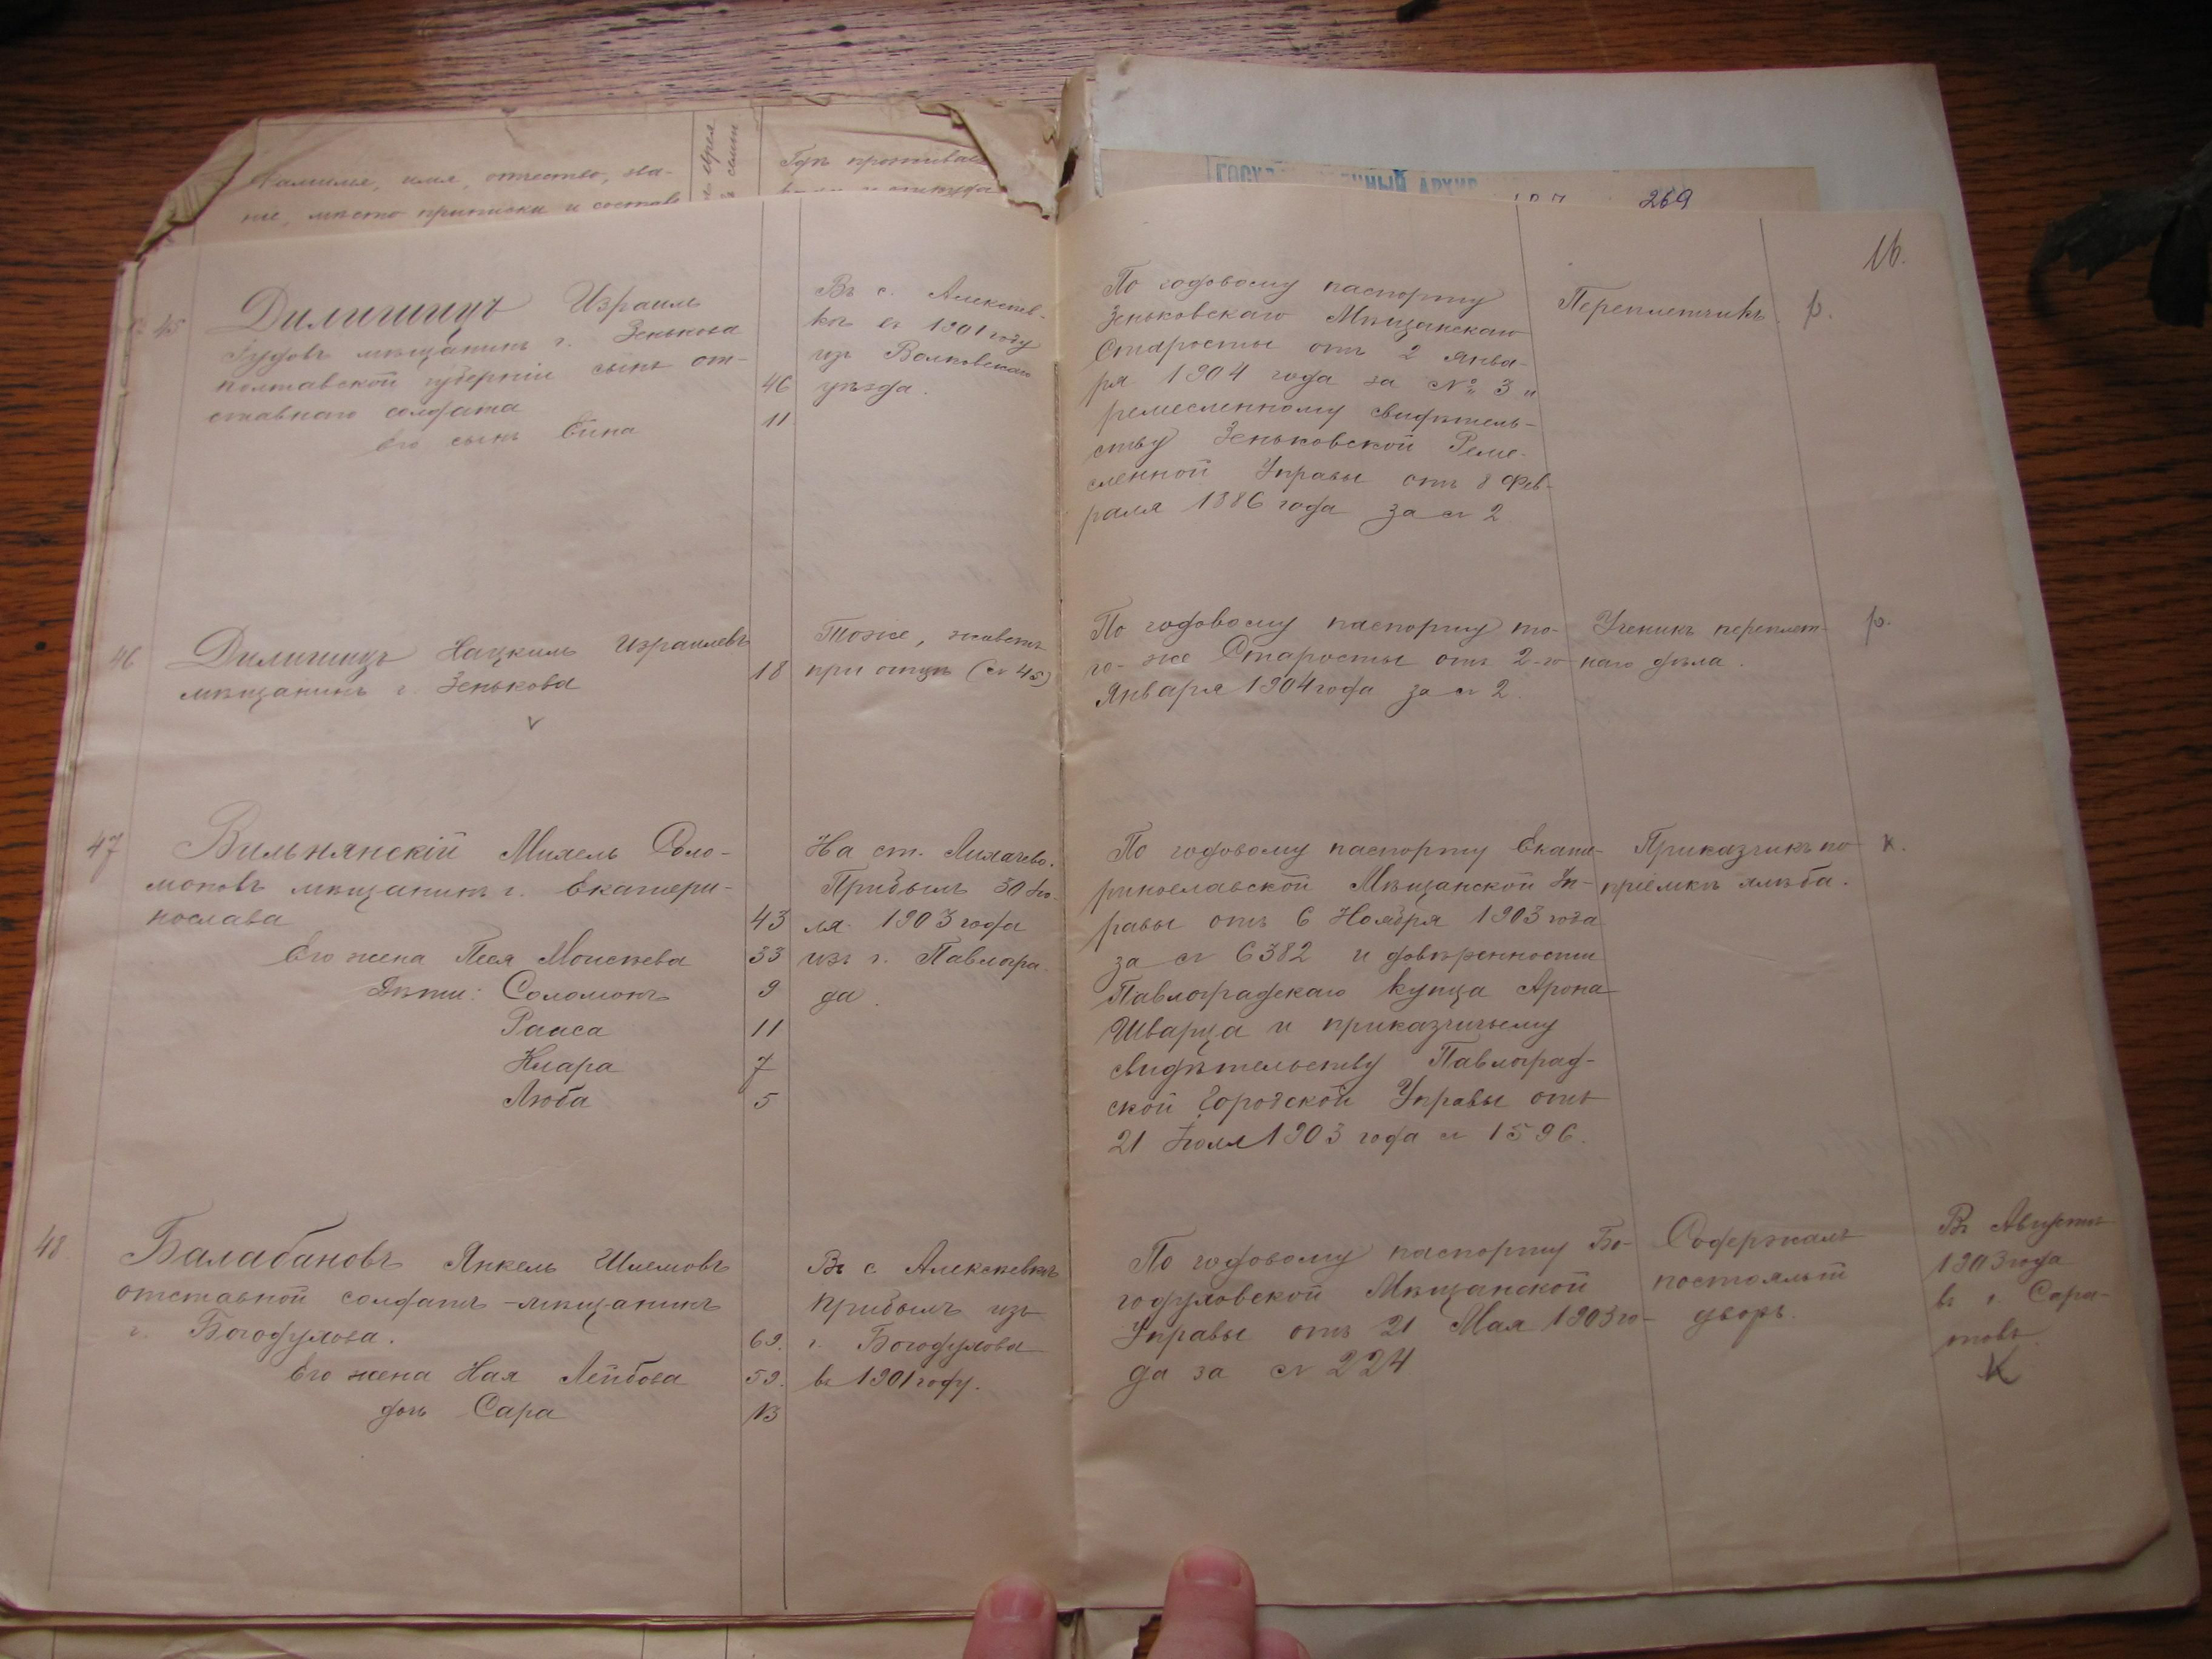 Фамилія, имя, отчество, зва-
ніе, мѣсто приписки и состав
Гдѣ проживае
и откуда
269
16.
45
Дилигишцъ Израиль
Зенькова
мѣщанинъ г.
полтавской губерніи сынъ от-
ставнаго солдата
46
Его сынъ
11
Въ с. Алексѣев-
кѣ съ 1901 году
изъ Валковскаго
уѣзда.
По годовому паспорту
Зеньковскаго Мѣщанскаго
Старосты отъ 2 Янва-
ря 1904 года за № 3 и
ремесленному свидѣтель-
ству Зеньковской Реме-
сленной Управы отъ 8 Фев-
раля 1886 года за № 2
Переплетчикъ.
р.
46
Хацкиль Израилевъ
мѣщанинъ г. Зенькова
18
Тоже, живетъ
при отцѣ (№ 45)
По годовому паспорту то-
го-же Старосты отъ 2-го
Января 1904 года за № 2.
Ученикъ переплет-
наго дѣла.
р.
47
Вильнянскій Михель Соло-
моновъ мѣщанинъ г. Екатери-
нослава
43
Его жена Песя Моисѣева
33
Дѣти: Соломонъ
9
Раиса
11
Клара
7
Люба
5
На ст. Лихачево.
Прибылъ 30 Ію-
ля 1903 года
изъ г. Павлогра-
да.
По годовому паспорту Екате-
ринославской Мѣщанской Уп-
равы отъ 6 Ноября 1903 года
за № 6382 и довѣренности
Павлоградскаго купца Арона
Шварца и приказчичьему
свидѣтельству Павлоград-
ской Городской Управы отъ
21 Іюля 1903 года № 1596.
Приказчикъ по
пріемкѣ хлѣба.
к.
48
Балабановъ Янкель Шлемовъ
отставной солдатъ - мѣщанинъ
г. Богодухова.
69.
Его жена Хая Лейбова
59.
дочь Сара
13
Въ с Алексѣевкѣ
прибылъ изъ
г. Богодухова
въ 1901 году.
По годовому паспорту Бо-
годуховской Мѣщанской
Управы отъ 21 Мая 1903 го-
да за № 224
Содержалъ
постоялый
дворъ.
Въ Августѣ
1903 года
въ г. Сара-
товъ.
К